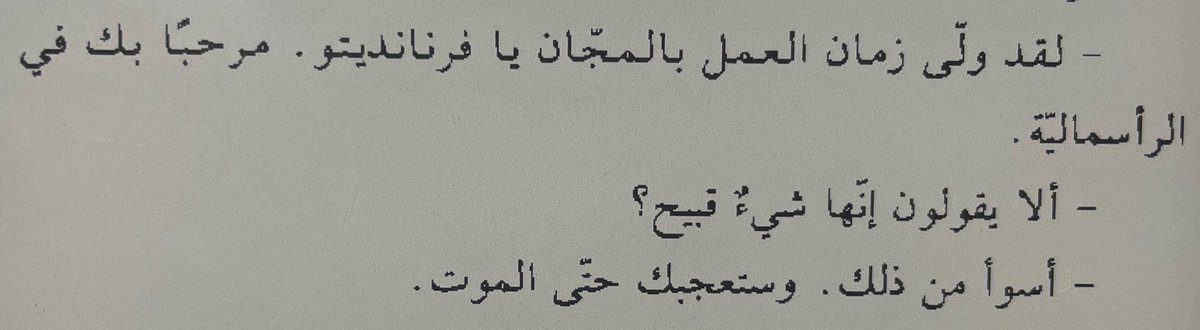 - لقد ولّى زمان العمل بالمجّان يا فرنانديتو. مرحبًا بك في
الرأسماليّة.
- ألا يقولون إنّها شيءٌ قبيح؟
- أسوأ من ذلك. وستعجبك حتّى الموت.